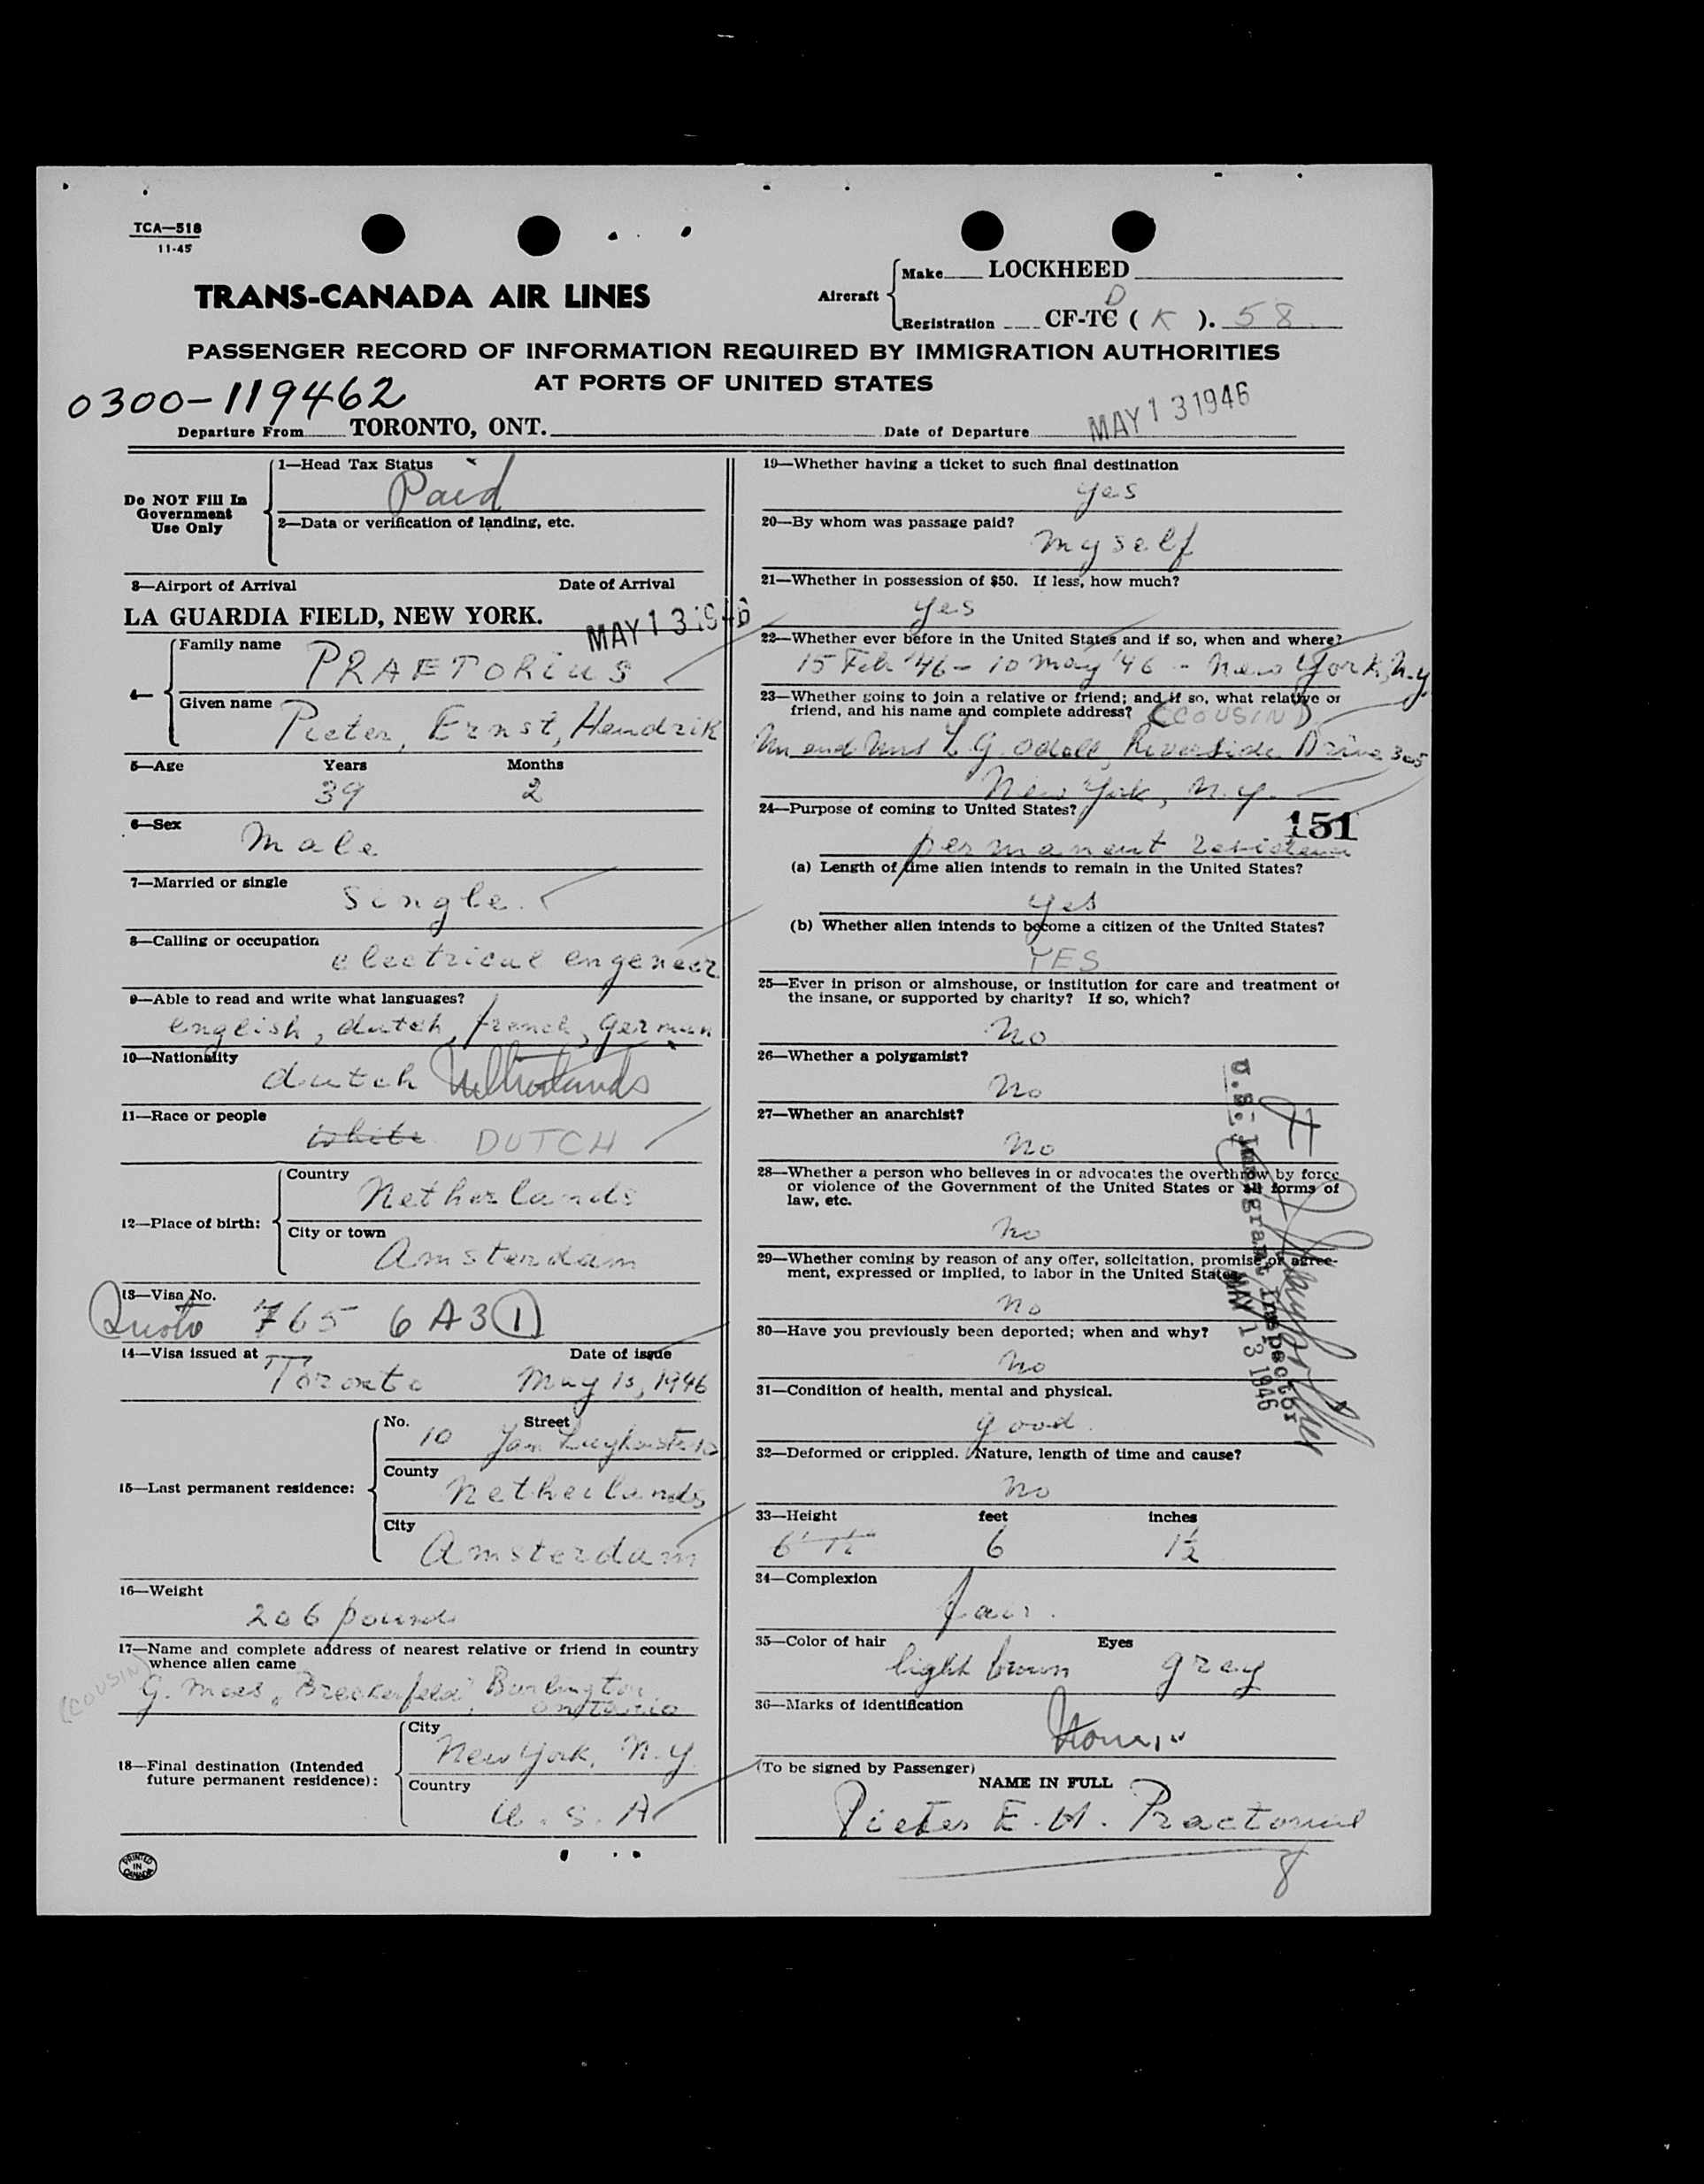 TCA—518
11-45
TRANS-CANADA AIR LINES
Aircraft
Make LOCKHEED
Registration CF-TC D ( K ). 58
PASSENGER RECORD OF INFORMATION REQUIRED BY IMMIGRATION AUTHORITIES
AT PORTS OF UNITED STATES
0300-119462
Departure From TORONTO, ONT. Date of Departure MAY 13 1946
Do NOT Fill In
Government
Use Only
1—Head Tax Status
Paid
2—Data or verification of landing, etc.
3—Airport of Arrival Date of Arrival
LA GUARDIA FIELD, NEW YORK. MAY 13 1946
4—
Family name
PRAETORIUS
Given name
Pieter, Ernst, Hendrik
5—Age Years Months
39 2
6—Sex
Male
7—Married or single
single.
8—Calling or occupation
electrical engeneer
9—Able to read and write what languages?
english, dutch, french, german
10—Nationality
dutch Netherlands
11—Race or people
white DUTCH
12—Place of birth:
Country
Netherlands
City or town
Amsterdam
13—Visa No.
Quota 765 6 A3 (1)
14—Visa issued at Date of issue
Toronto May 13, 1946
15—Last permanent residence:
No. Street
10 Jan
County
Netherlands
City
Amsterdam
16—Weight
206 pound
17—Name and complete address of nearest relative or friend in country
whence alien came
(COUSIN)
G. Moes, Burlington
ontario
18—Final destination (Intended
future permanent residence):
City
New York, N.Y.
Country
U.S.A
PRINTED
IN
CANADA
19—Whether having a ticket to such final destination
yes
20—By whom was passage paid?
myself
21—Whether in possession of $50. If less, how much?
yes
22—Whether ever before in the United States and if so, when and where?
15 Feb '46 - 10 May '46 - New York, N.Y.
23—Whether going to join a relative or friend; and if so, what relative or
friend, and his name and complete address? (COUSIN)
Mr and Mrs L.G. Odell, Riverside Drive 305
New York, N.Y.
24—Purpose of coming to United States?
151
permanent residence
(a) Length of time alien intends to remain in the United States?
yes
(b) Whether alien intends to become a citizen of the United States?
YES
25—Ever in prison or almshouse, or institution for care and treatment of
the insane, or supported by charity? If so, which?
No
26—Whether a polygamist?
No
27—Whether an anarchist?
No
28—Whether a person who believes in or advocates the overthrow by force
or violence of the Government of the United States or all forms of
law, etc.
No
29—Whether coming by reason of any offer, solicitation, promise or agree-
ment, expressed or implied, to labor in the United States
No
30—Have you previously been deported; when and why?
No
31—Condition of health, mental and physical.
good.
32—Deformed or crippled. Nature, length of time and cause?
No
33—Height feet inches
6' 1½" 6 1½
34—Complexion
fair.
35—Color of hair Eyes
light brown grey
36—Marks of identification
None
(To be signed by Passenger)
NAME IN FULL
Pieter E.H. Praetorius
8
U.S. Immigrant Inspector
MAY 13 1946